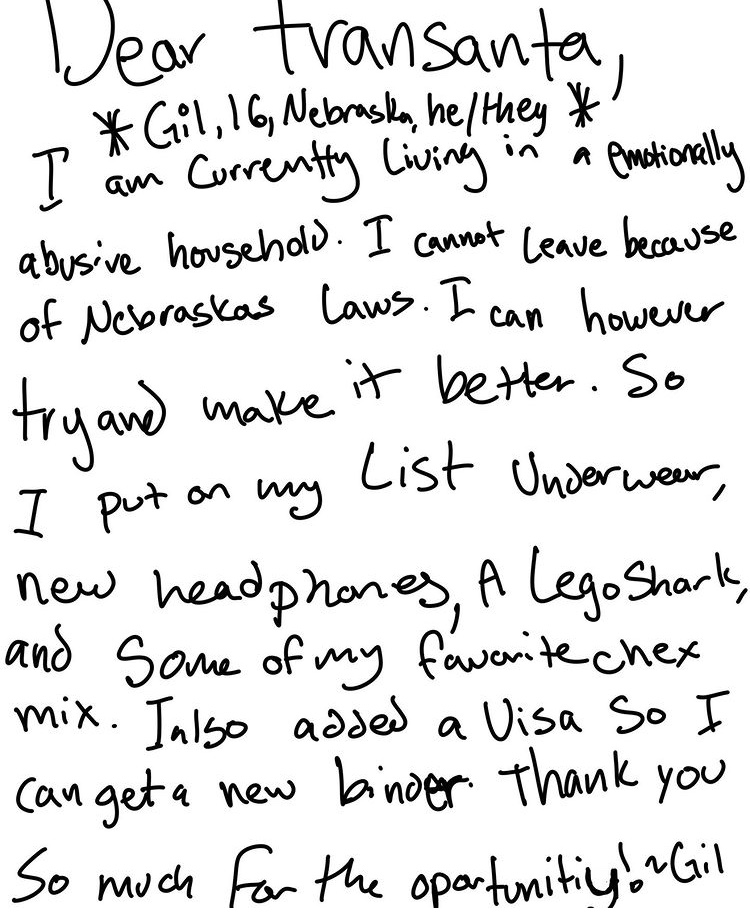 Dear transanta,
*Gil, 16, Nebraska, he/they *
I am currently living in a emotionally
abusive household. I cannot leave because
of Nebraskas laws. I can however
try and make it better. So
I put on my list underwear,
new headphones, A Lego Shark,
and some of my favorite chex
mix. I also added a Visa so I
can get a new binder. Thank you
So much for the oportunitiy! ~Gil